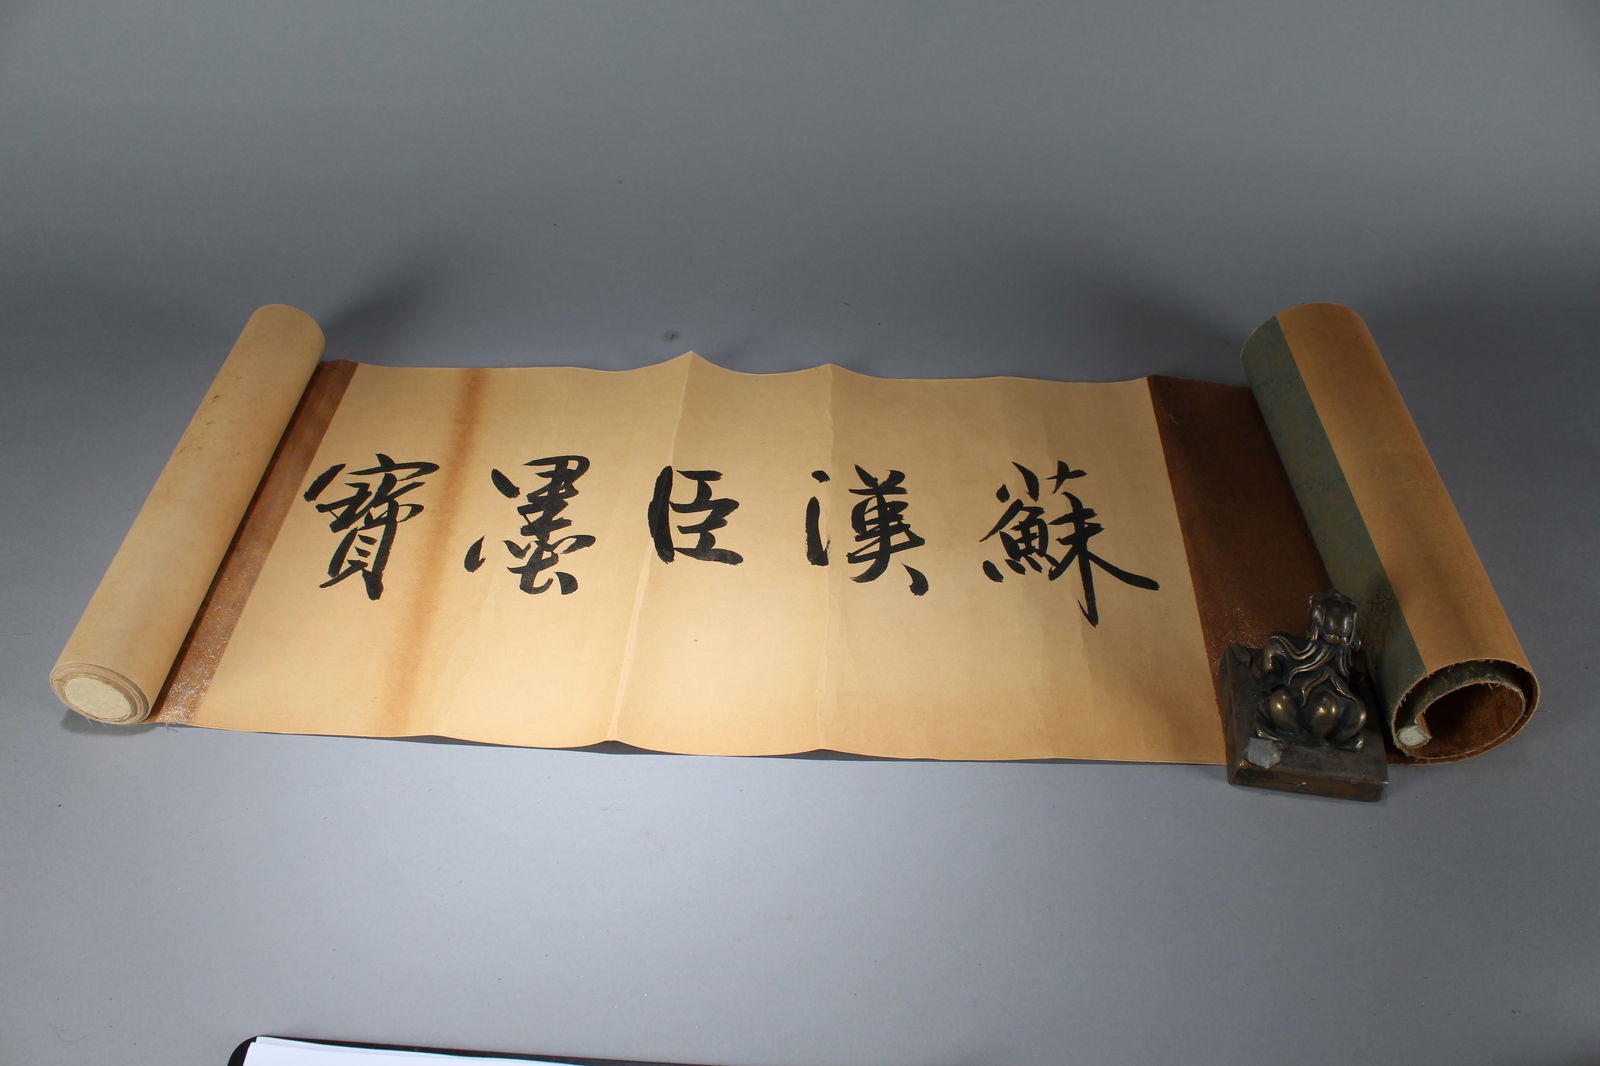 蘇漢臣墨寶